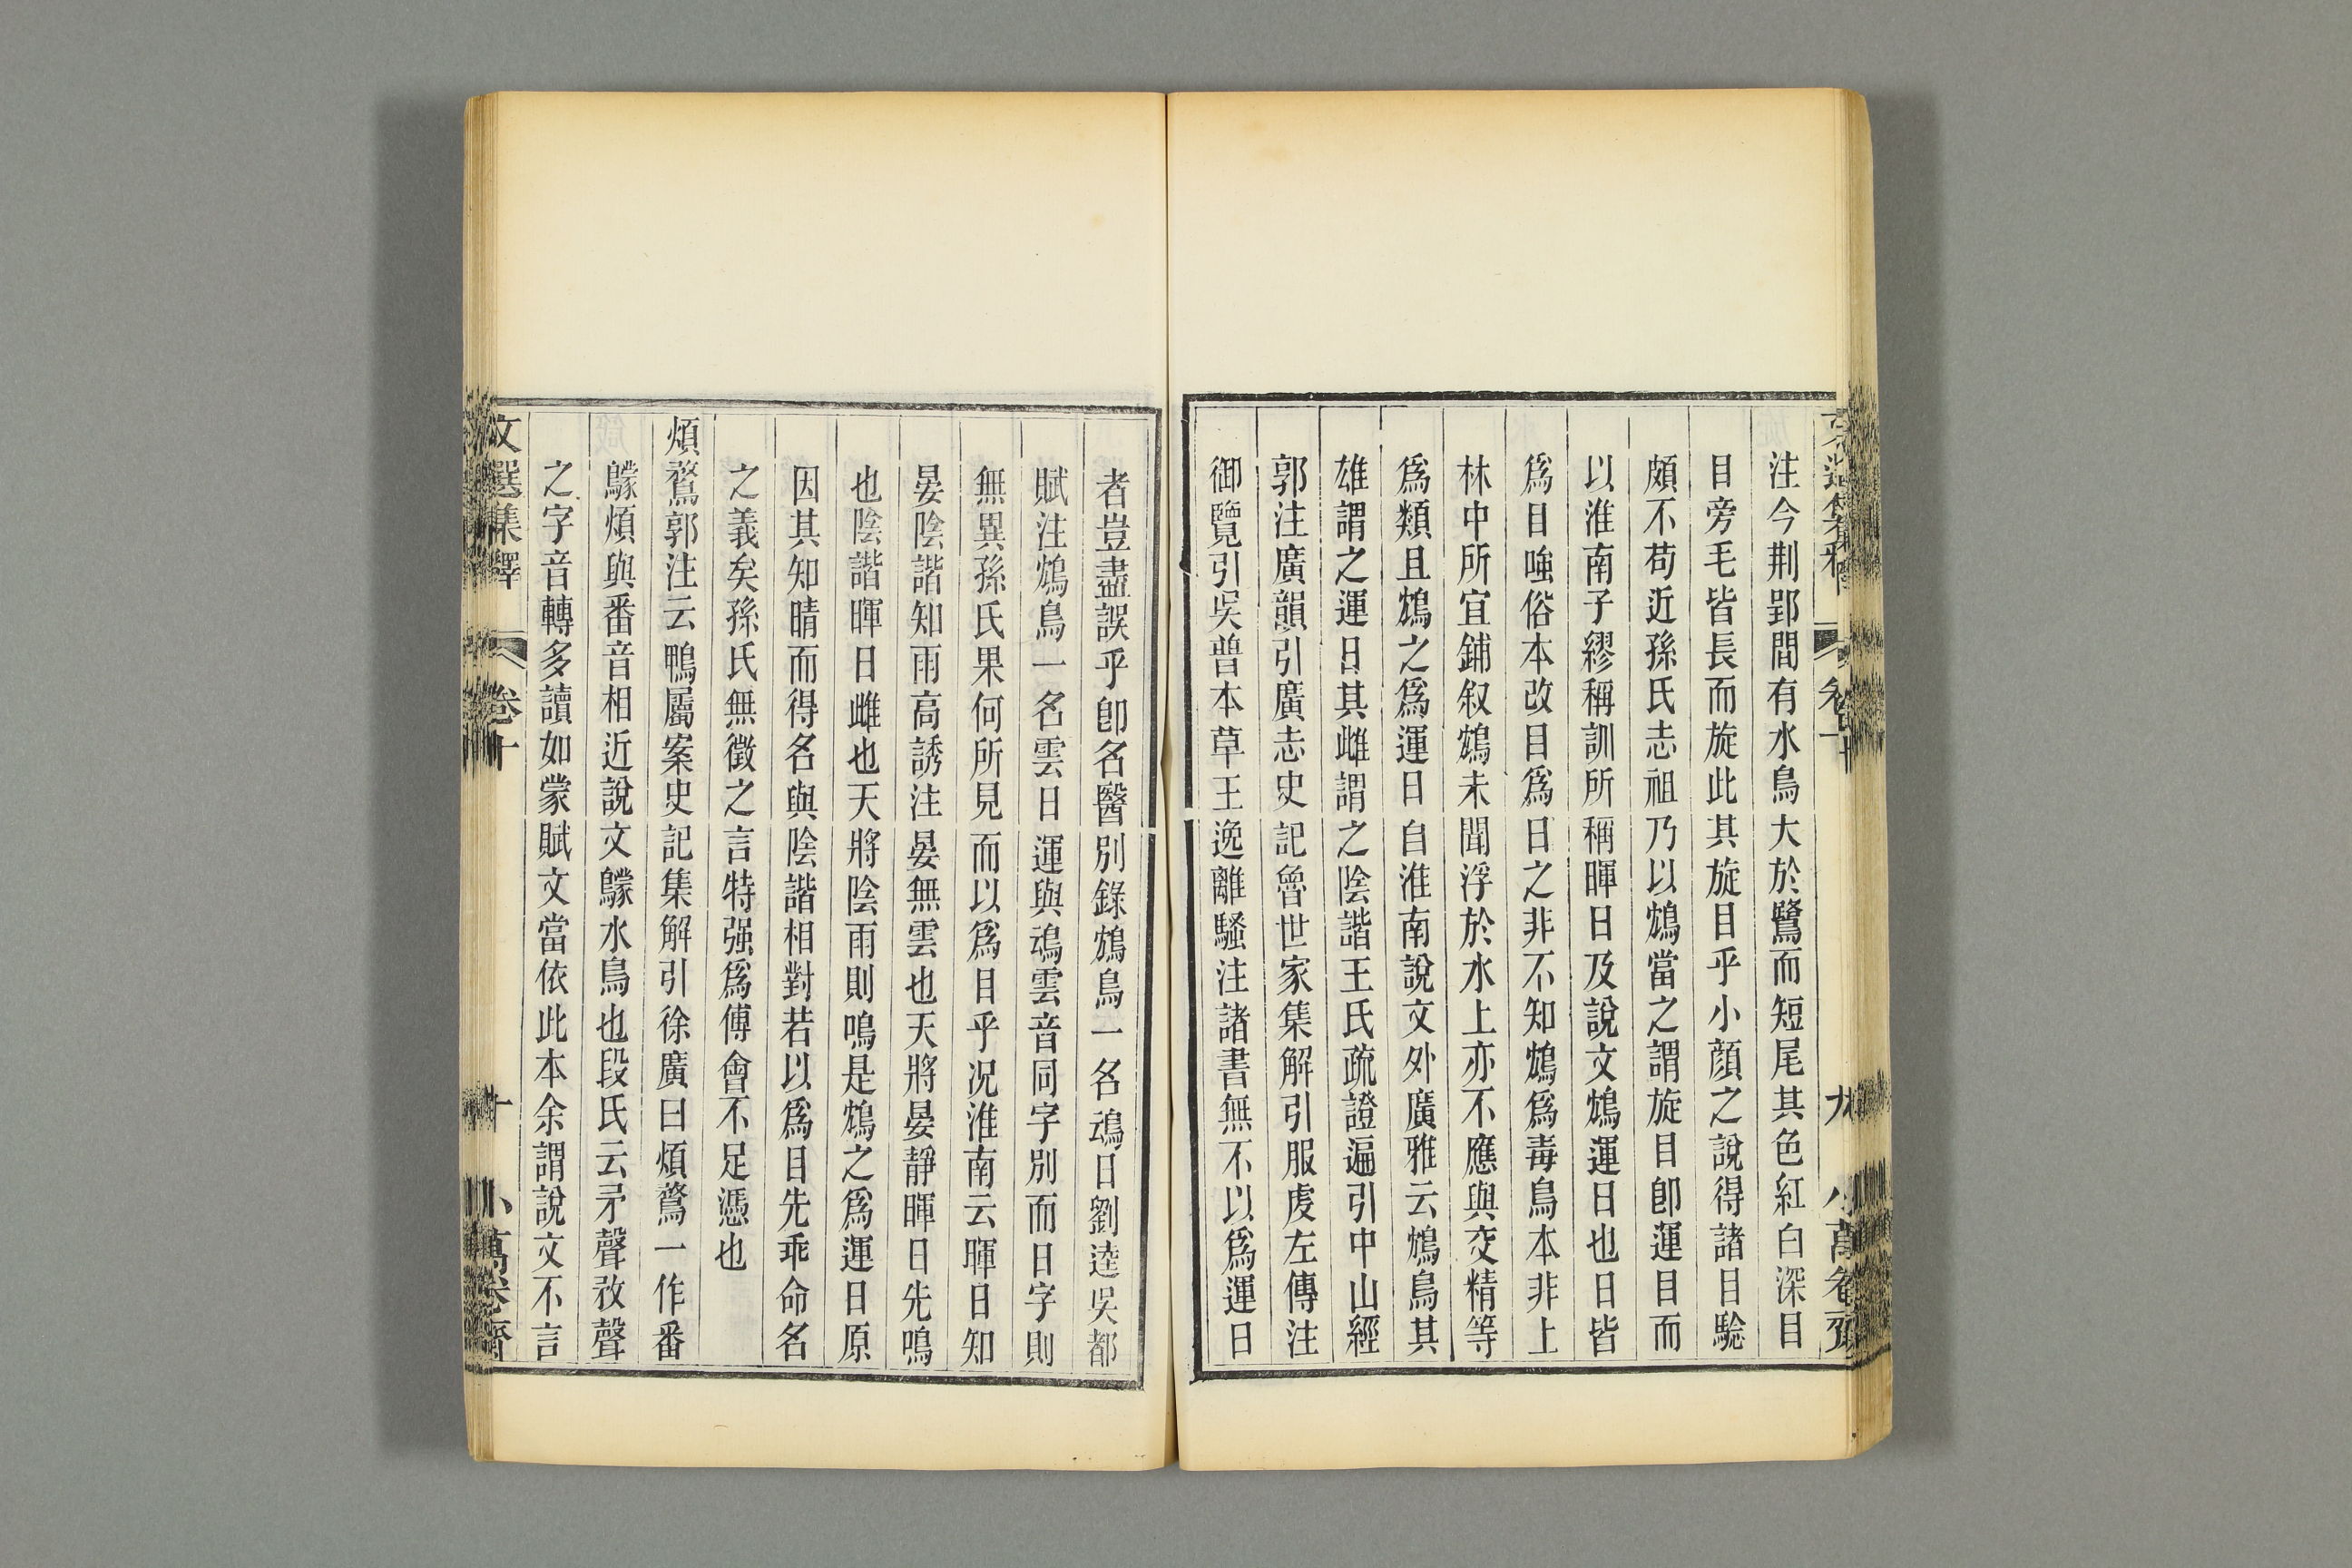 注今荆郢間有水鳥大於鷺而短尾其色紅白深目
目旁毛皆長而旋此其旋目乎小顔之說得諸目驗
頗不苟近孫氏志祖乃以鴆當之謂旋目卽運目而
以淮南子繆稱訓所稱暉日及說文鴆運日也日皆
爲目喗俗本改目爲日之非不知鴆爲毒鳥本非上
林中所宜鋪叙鴆未聞浮於水上亦不應與交精等
爲類且鴆之爲運日自淮南說文外廣雅云鴆鳥其
雄謂之運日其雌謂之陰諧王氏疏證遍引中山經
郭注廣韻引廣志史記魯世家集解引服虔左傳注
御覽引吳普本草王逸離騷注諸書無不以爲運日
者豈盡誤乎卽名醫別錄鴆鳥一名䲰日劉逵吳都
賦注鴆鳥一名雲日運與䲰雲音同字別而日字則
無異孫氏果何所見而以爲目乎况淮南云暉日知
晏陰諧知雨高誘注晏無雲也天將晏靜暉日先鳴
也陰諧暉日雌也天將陰雨則鳴是鴆之爲運日原
因其知晴而得名與陰諧相對若以爲目先乖命名
之義矣孫氏無徵之言特强爲傅會不足憑也
煩鶩郭注云鴨屬案史記集解引徐廣曰煩鶩一作番
䴌煩與番音相近說文䴌水鳥也段氏云矛聲敄聲
之字音轉多讀如蒙賦文當依此本余謂說文不言
文選集釋 卷十 十 小萬卷齋